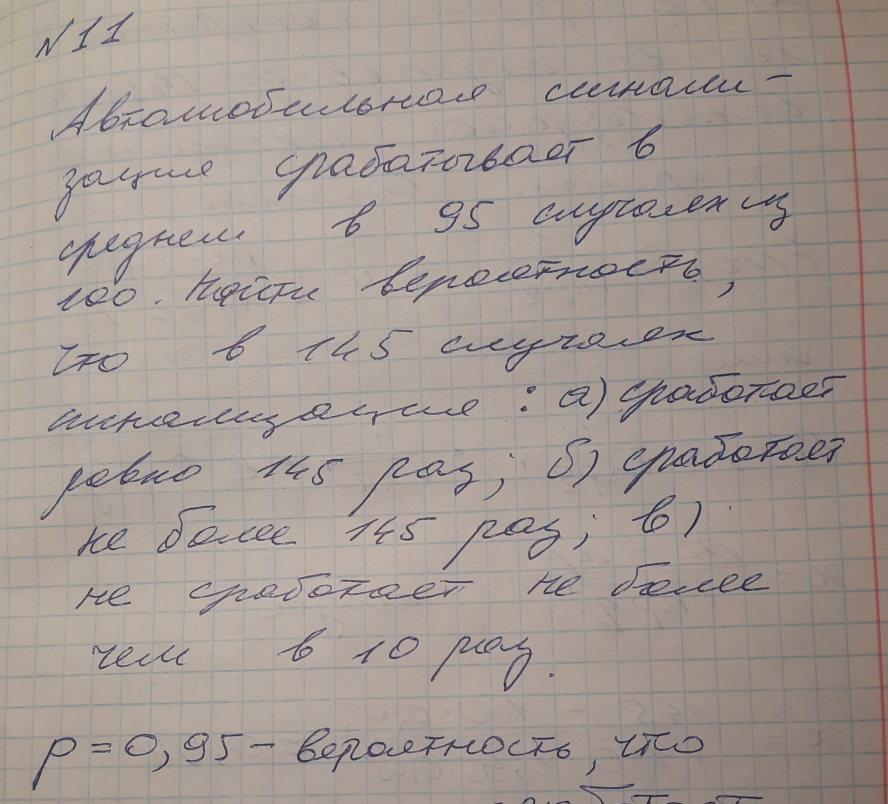 N11
Автомобильная сигнали-
зация срабатывает в
среднем в 95 случаях из
100. Найти вероятность,
что в 145 случаях
сигнализация : а) сработает
ровно 145 раз; б) сработает
не более 145 раз; в)
не сработает не более
чем в 10 раз.
p = 0,95 - вероятность, что
сработает